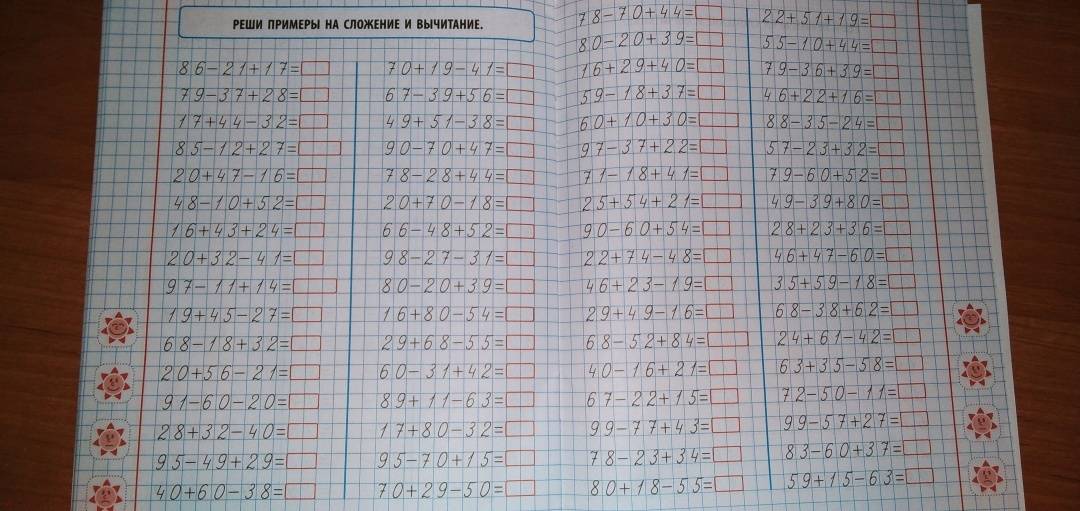 РЕШИ ПРИМЕРЫ НА СЛОЖЕНИЕ И ВЫЧИТАНИЕ.
86-21+17=
79-37+28=
17+44-32=
85-12+27=
20+47-16=
48-10+52=
16+43+24=
20+32-41=
97-11+14=
19+45-27=
68-18+32=
20+56-21=
91-60-20=
28+32-40=
95-49+29=
40+60-38=
70+19-41=
67-39+56=
49+51-38=
90-70+47=
78-28+44=
20+70-18=
66-48+52=
98-27-31=
80-20+39=
16+80-54=
29+68-55=
60-31+42=
89+11-63=
17+80-32=
95-70+15=
70+29-50=
78-70+44=
80-20+39=
16+29+40=
59-18+37=
60+10+30=
97-37+22=
71-18+41=
25+54+21=
90-60+54=
22+74-48=
46+23-19=
29+49-16=
68-52+84=
40-16+21=
67-22+15=
99-77+43=
78-23+34=
80+18-55=
22+51+19=
55-10+44=
79-36+39=
46+22+16=
88-35-24=
57-23+32=
79-60+52=
49-39+80=
28+23+36=
46+47-60=
35+59-18=
68-38+62=
24+61-42=
63+35-58=
72-50-11=
99-57+27=
83-60+37=
59+15-63=